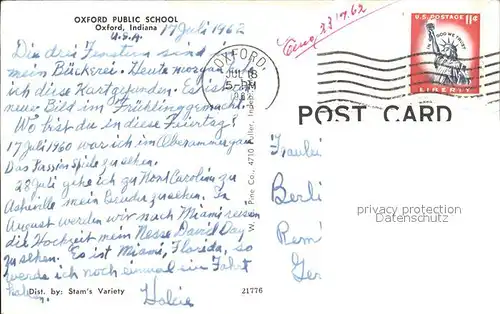 OXFORD PUBLIC SCHOOL
Oxford, Indiana
U.S.A. 17 Juli 1962
Die drei Fenstern sind
mein Bückerei. Heute morgen
ich diese Kart gefunden. Es ist
neue Bild im Frühling gemacht
Wo bist du in diese Feiertag?
17 Juli 1960 war ich im Oberammergau
Das Passion Spiele zu sehen.
28 Juli gehe ich zu North Carolina zu
Asheville mein Bruder zu sehen. In
August werden wir nach Miami reisen
die Hochzeit mein Nesse David Day
zu sehen. Es ist Miami, Florida, so
werde ich noch einmal ein Fahrt
haben.
Dist. by: Stam's Variety
21776
Pine Co., 4710
OXFORD,
JUL 18
5-PM
1962
23.7.62
U.S. POSTAGE 11¢
IN GOD WE TRUST
LIBERTY
POST CARD
Fraulei
Berli
Ger
privacy protection
Datenschutz